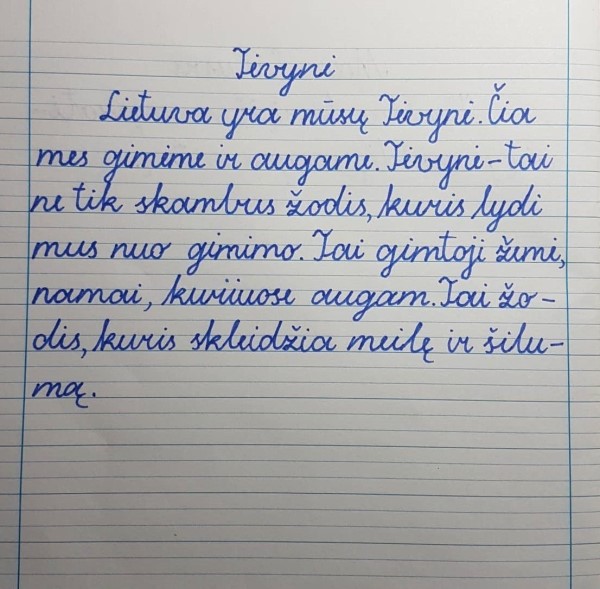 Tėvynė
Lietuva yra mūsų Tėvynė. Čia
mes gimėme ir augame. Tėvynė-tai
ne tik skambus žodis, kuris lydi
mus nuo gimimo. Tai gimtoji žemė,
namai, kuriuose augam. Tai žo-
dis, kuris skleidžia meilę ir šilu-
mą.